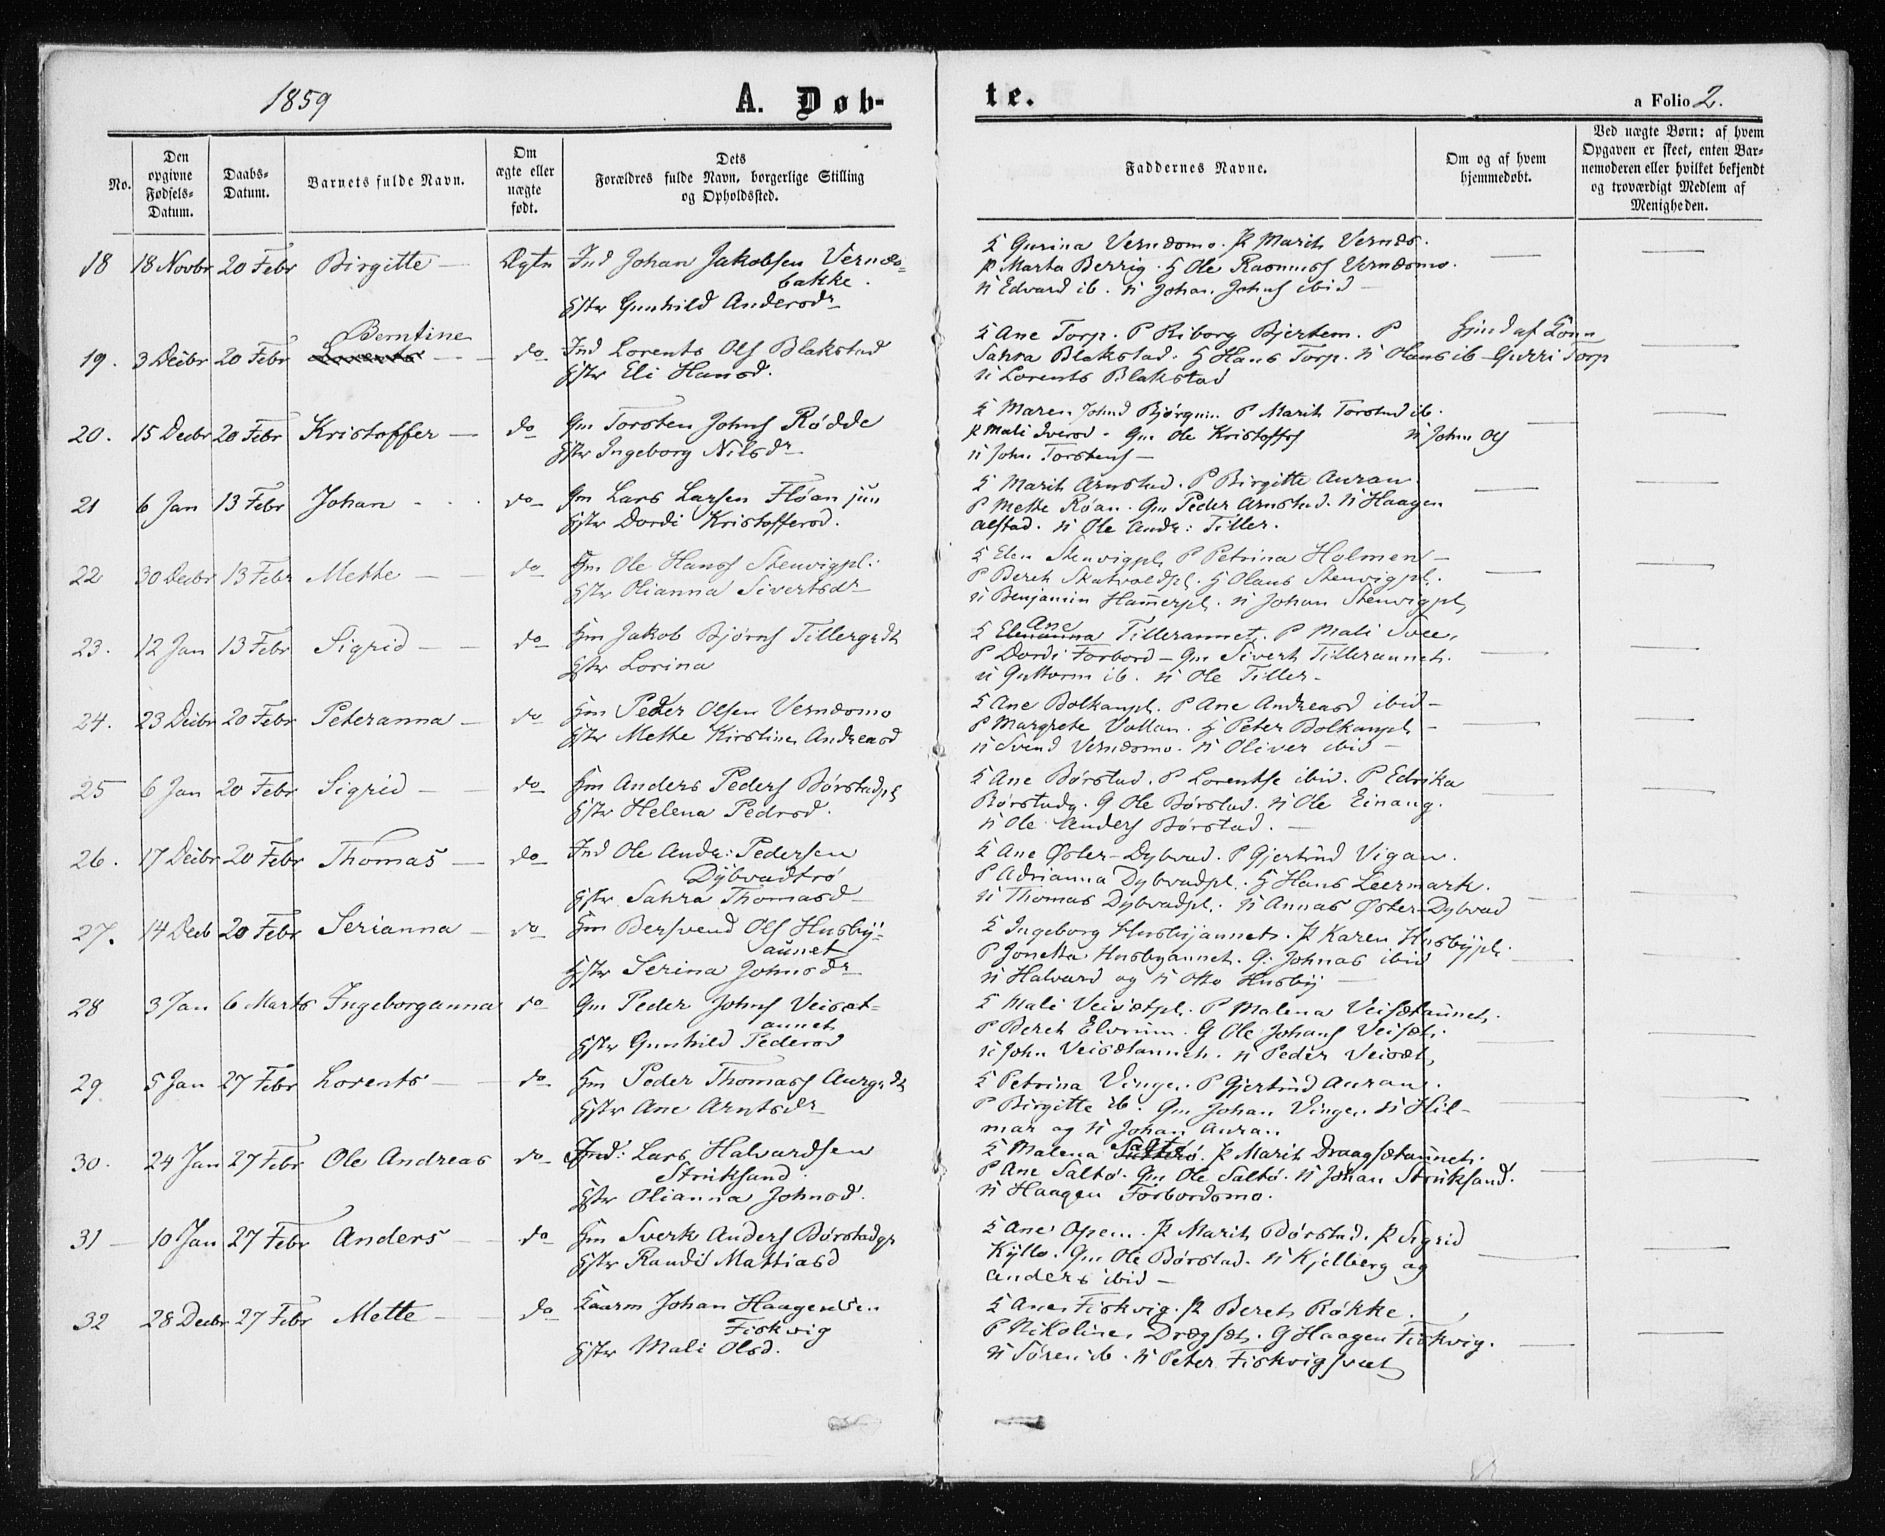 1859
A. Døb-
te.
a Folio 2.
No.
Den opgivne Fødsels-Datum.
Daabs-Datum.
Barnets fulde Navn.
Om ægte eller uægte født.
Dets Forældres fulde Navn, borgerlige Stilling og Opholdssted.
Faddernes Navne.
Om og af hvem hjemmedøbt.
Ved uægte Børn: af hvem Opgaven er skeet, enten Barnemoderen eller hvilket bekjendt og troværdigt Medlem af Menigheden.
18 18 Novbr 20 Febr Birgitte — Ægte Ind Johan Jakobsen Vernæs-
bakke.
Hstr Gunhild Andersdr
K Gurina Vernæsmo. P Marit Vernæs.
P Marta Berrig. G Ole Rasmuss Vernæsmo.
N Edvard ib. N Johan Johns ibid —
19. 3 Decbr 20 Febr Berntine do Ind Lorents Ols Blakstad
Hstr Eli Hansd.
K Ane Torp. P Riborg Bjertem. P
Sahra Blakstad. G Hans Torp. N Olaus ib
N Lorents Blakstad
Gurri Torp
20. 15 Decbr 20 Febr Kristoffer — do Gm Torsten Johns Rødde
Hstr Ingeborg Nilsdr
K Maren Johnsd P Marit Torstensd ib.
P Mali Iversd. Gm Ole Kristoffs N John Ols
N John Torstens —
21 6 Jan 13 Febr Johan do Gm Lars Larsen Fløan jun
Hstr Dordi Kristoffersd.
K Marit Arnstad. P Birgitte Auran.
P Mette Røan. Gm Peder Arnstad. N Haagen
Alstad. N Ole Andr: Tiller.
22 30 Decbr 13 Febr Mette — do Hm Ole Hanss Stenvigpl.
Hstr Olianna Sivertsdr
K Elen Stenvigpl. P Petrina Holmen —
P Beret Skatvoldpl. G Olaus Stenvigpl.
N Benjamin Hammerpl. N Johan Stenvigpl.
23. 12 Jan 13 Febr Sigrid — do Hm Jakob Bjørns Tillergrdt
Hstr Lorina
K Ane Tilleraunet. P Mali Svee.
P Dordi Forbord — Gm Sivert Tilleraunet.
N Guttorm ib. N Ole Tiller.
24. 23 Decbr 20 Febr Peteranna — do Hm Peder Olsen Vernæsmo
Hstr Mette Kirstine Andreasd
K Ane Bolkanpl. P Ane Andreasd ibid —
P Margrete Vollan. G Peter Bolkanpl —
N Svend Vernæsmo. N Oliver ibid —
25 6 Jan 20 Febr Sigrid — do Hm Anders Peders Børstadpl
Hstr Helena Pedersd.
K Ane Børstad. P Lorentse ibid. P Edrika
Børstadg. G Ole Børstad. N Ole Einang.
N Ole Anders Børstad. —
26. 17 Decbr 20 Febr Thomas — do Ind Ole Andr: Pedersen
Dybvadtrø
Hstr Sahra Thomasd
K Ane Øster-Dybvad. P Gjertrud Vigan.
P Adrianna Dybvadpl. G Hans Leermark.
N Thomas Dybvadpl. N Annas Øster-Dybvad
27. 14 Decb 20 Febr Serianna — do Hm Bersvend Ols Husby-
aunet
Hstr Serina Johnsdr
K Ingeborg Husbyaunet. P Karen Husbypl.
P Jonetta Husbyaunet. G: Johnas ibid
N Halvard og N Otto Husby —
28 3 Jan 6 Marts Ingeborganna do Gm Peder Johns Veisæt-
aunet
Hstr Gunhild Pedersd
K Mali Veisætpl. P Malena Veisætaunet.
P Beret Elvrum. G Ole Johans Veisæt.
N John Veisætaunet. N Peder Veisæt
29 5 Jan 27 Febr Lorents — do Hm Peder Thomass Aurgrdt
Hstr Ane Arntsdr
K Petrina Vinge. P Gjertrud Auran.
P Birgitte ib. Gm Johan Vinge. N Hil-
mar og N Johan Auran
30. 24 Jan 27 Febr Ole Andreas do Ind: Lars Halvardsen
Struksand.
Hstr Olianna Johnsd.
K Malena Saltø. P Marit Draagsætaunet.
P Ane Saltø. Gm Ole Saltø. N Johan Struksand.
N Haagen Forbordsmo.
31 — 10 Jan 27 Febr Anders — do Hm Sverk Anders Børstadgr
Hstr Randi Mattiasd
K Ane Opem. P Marit Børstad. P Sigrid
Kyllo. Gm Ole Børstad. N Kjelberg og
Anders ibid —
32 28 Decbr 27 Febr Mette — do Kaarm Johan Haagensen
Fiskvig
Hstr Mali Olsd.
K Ane Fiskvig. P Beret Røkke.
P Nikoline Drægset. G Haagen Fiskvig.
N Søren ib. N Peter Fiskvigsvet